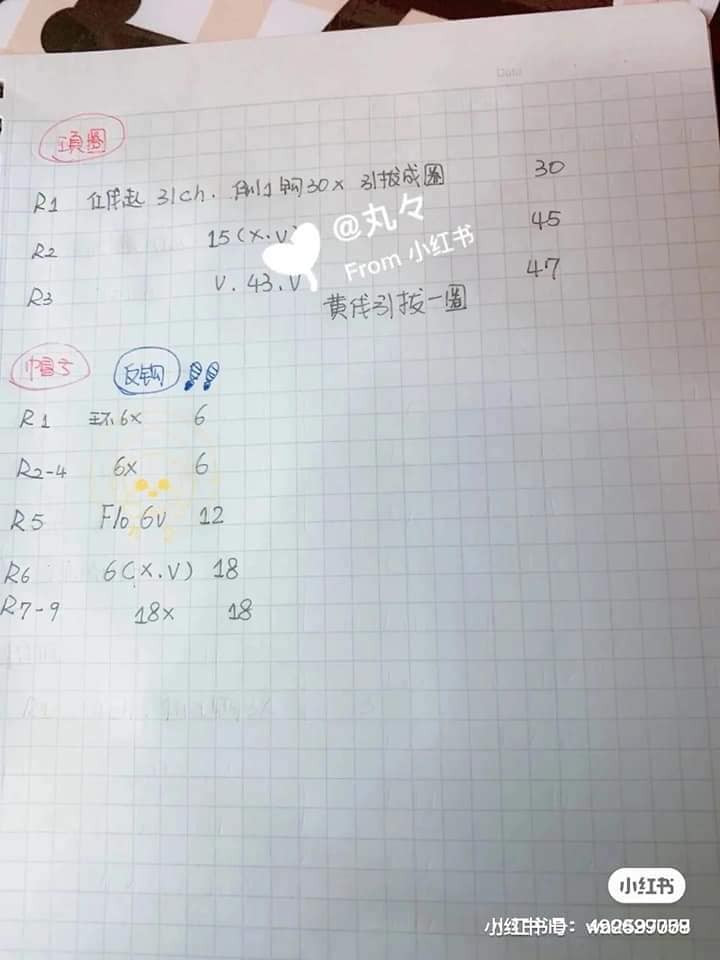 Date
項圈
R1 位庫起 31ch. 倒1钩30x 引拔成圈 30
R2 15(x.v) 45
@丸々
From 小红书
R3 v. 43. v 47
黄线引拔一圈
帽子 反钩
R1 环6x 6
R2-4 6x 6
R5 Flo 6v 12
R6 6(x.v) 18
R7-9 18x 18
小红书
小红书号: